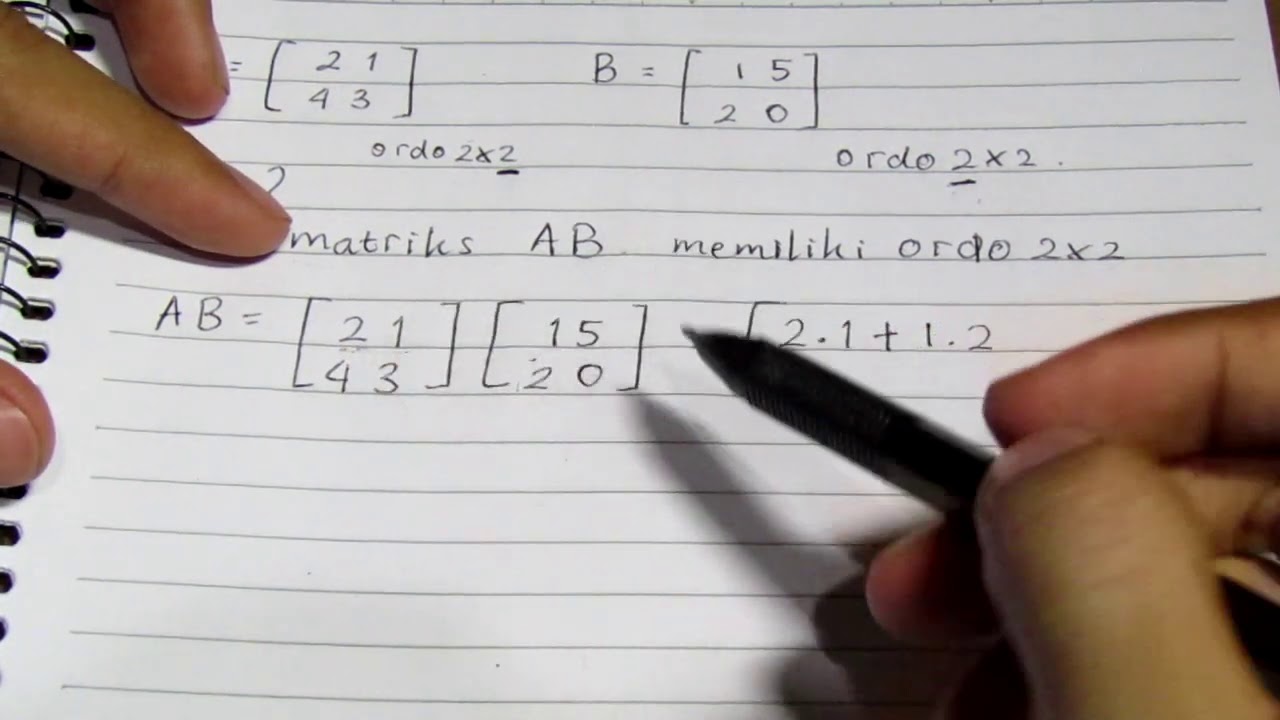 = [ 2 1 ] B = [ 1 5 ]
[ 4 3 ] [ 2 0 ]
ordo 2x2 ordo 2x2.
2
matriks AB memiliki ordo 2x2
AB = [ 2 1 ] [ 1 5 ] [ 2.1 + 1.2
[ 4 3 ] [ 2 0 ]